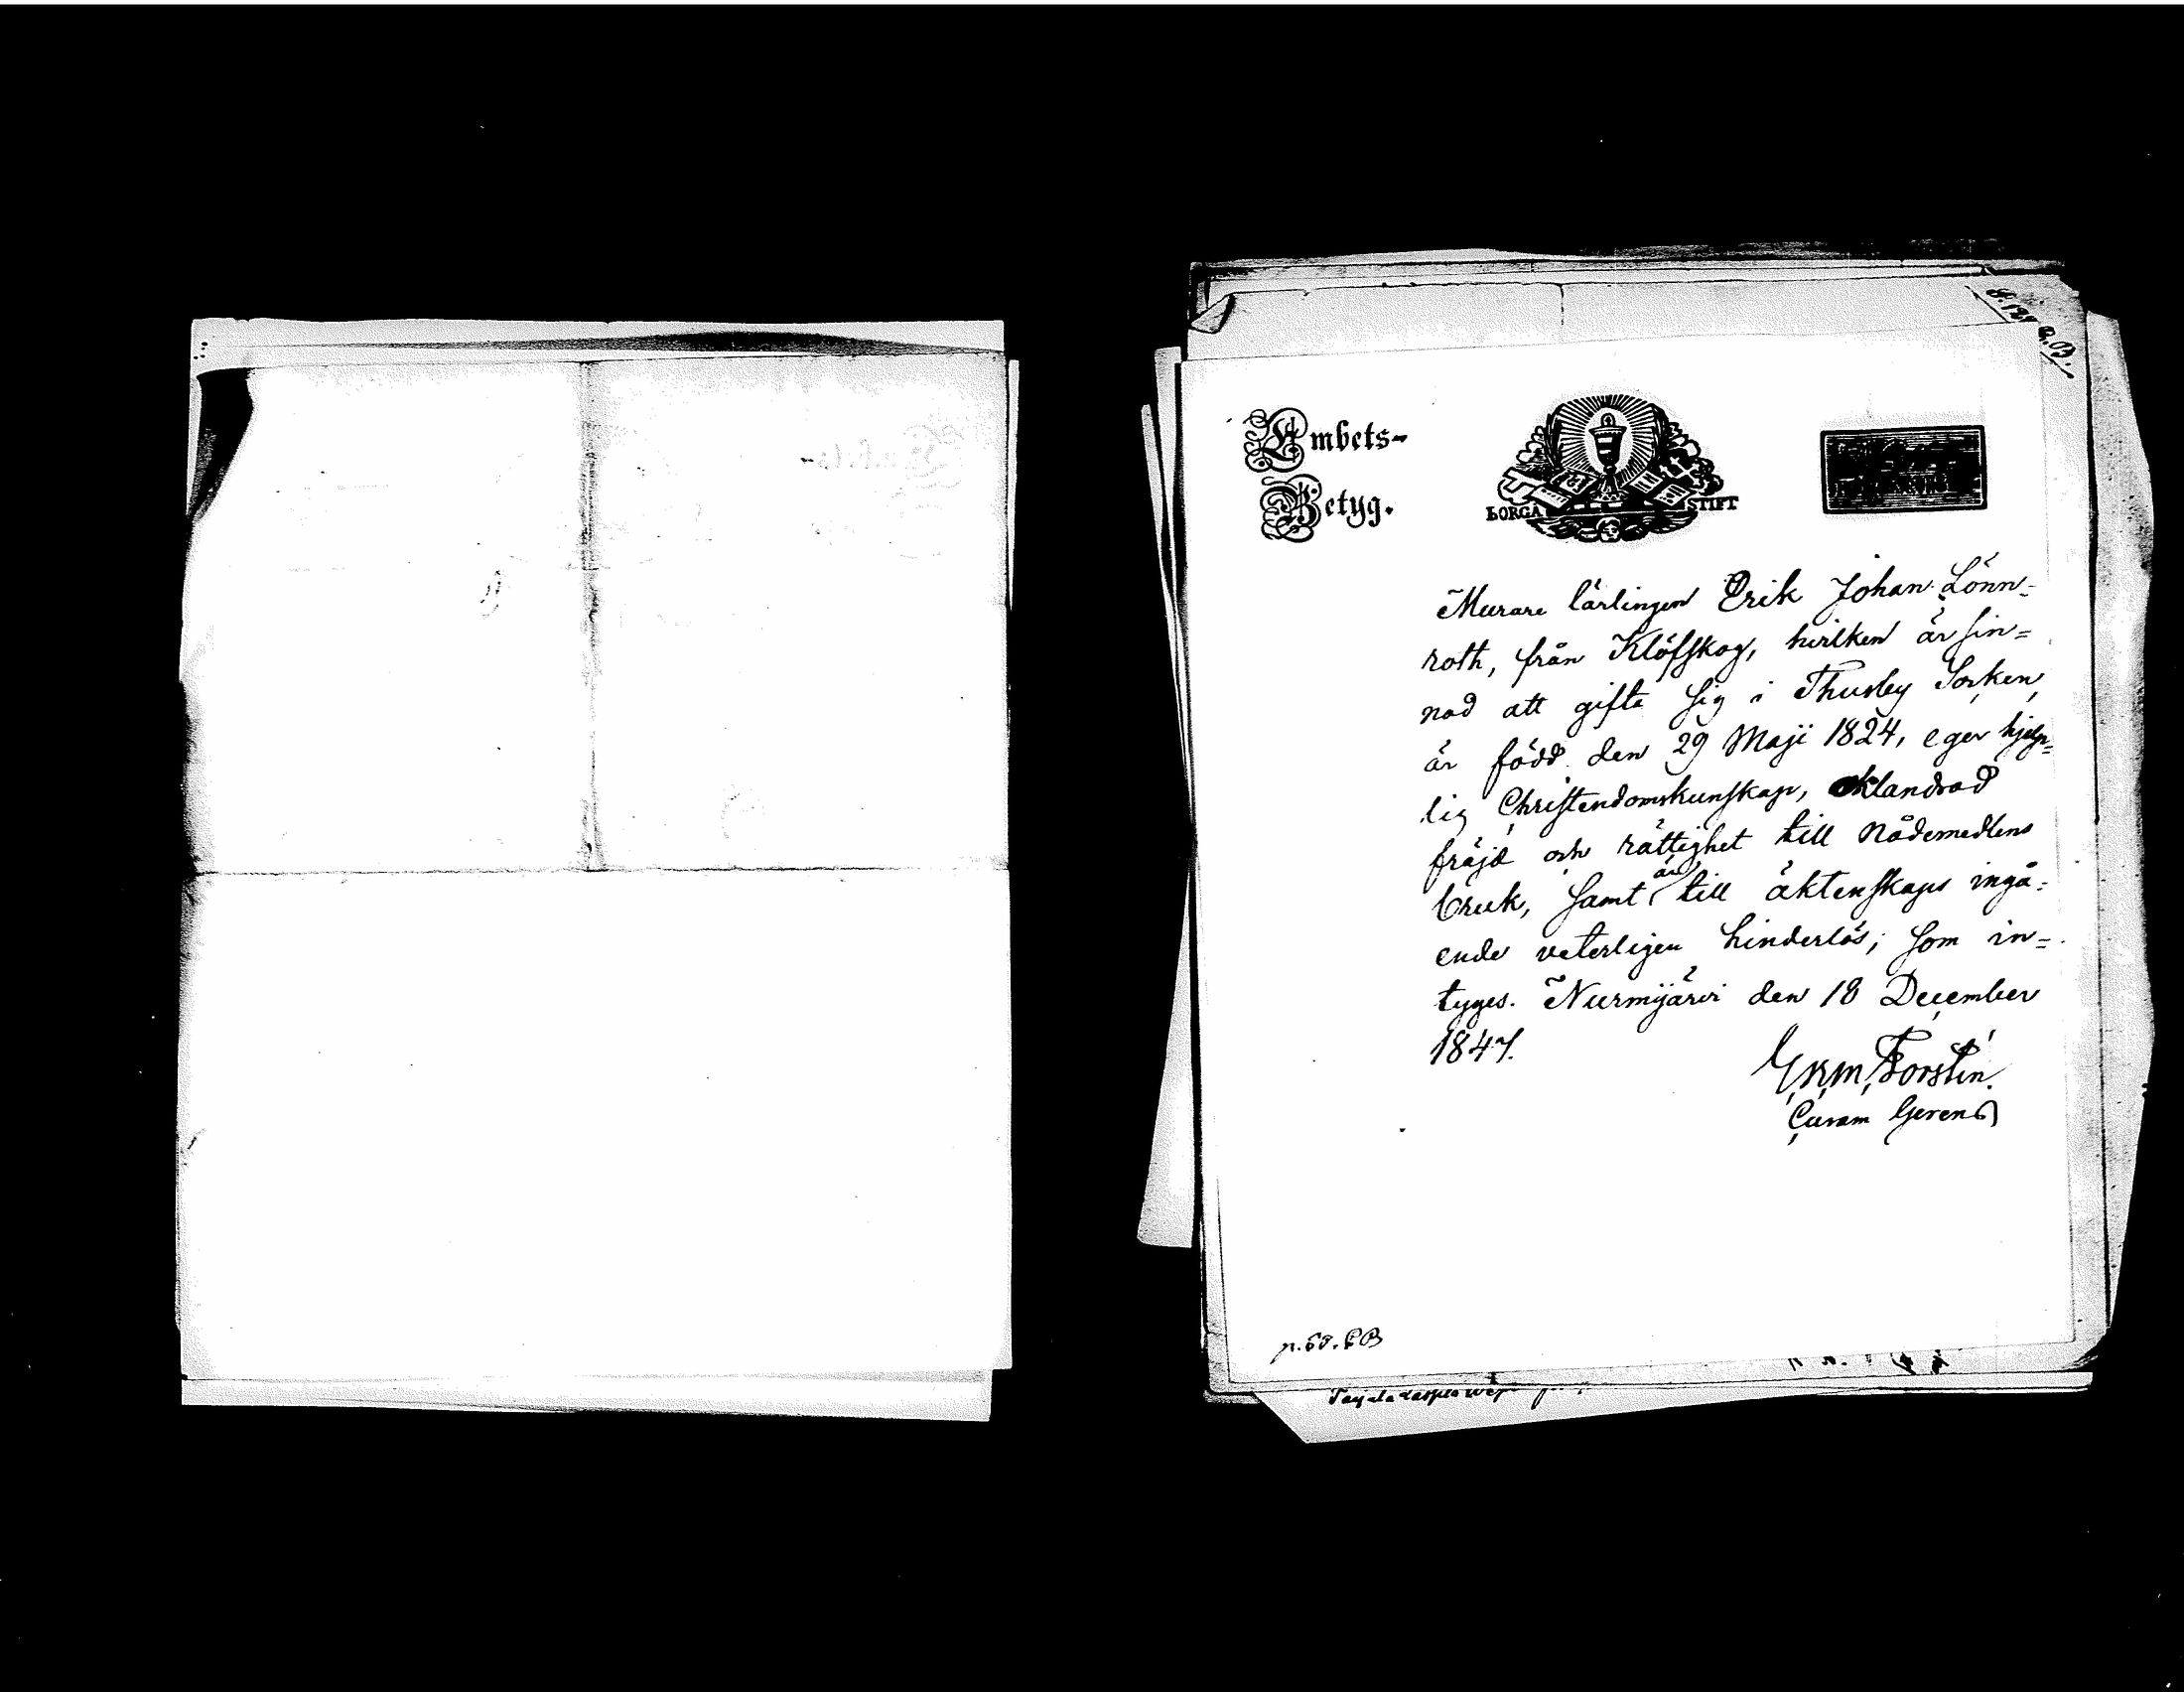 S. 127 C.B.
Embets-
Betyg.
BORGÅ STIFT
Murare lärlingen Erik Johan Lönn-
roth, från Klöfskog, hvilken är sin=
nad att gifta sig i Thusby Socken,
är född den 29 Maji 1824, eger hjelp=
lig Christendomskunskap, oklandrad
fräjd och rättighet till Nådemedlens
bruk, samt är till äktenskaps ingå=
ende veterligen hinderlös; som in=
tyges. Nurmijärvi den 18 December
1847.
Forstén.
Curam Gerens
p. 68. C B